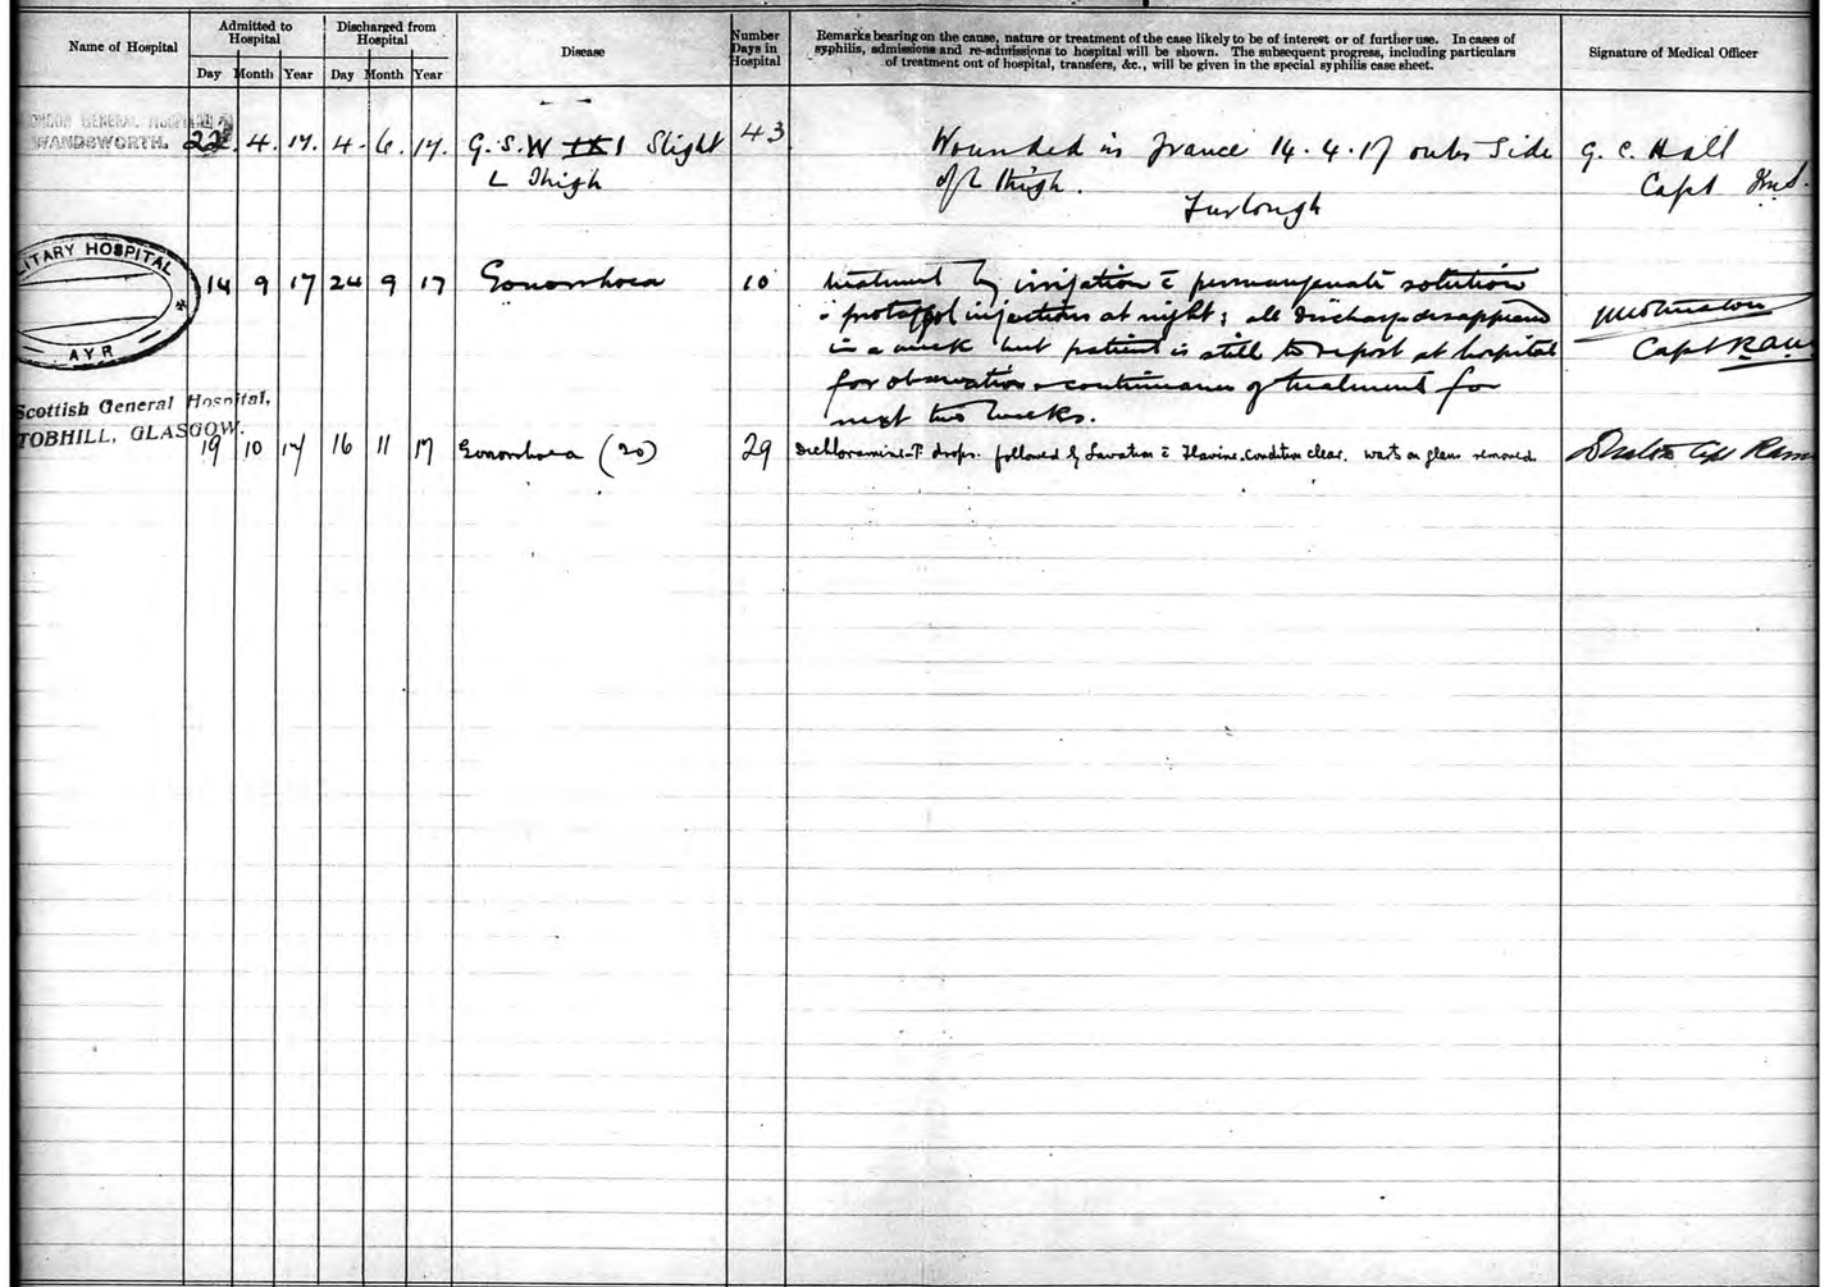 Name of Hospital
Admitted to Hospital
Discharged from Hospital
Disease
Number Days in Hospital
Remarks bearing on the cause, nature or treatment of the case likely to be of interest or of further use. In cases of
syphilis, admissions and re-admissions to hospital will be shown. The subsequent progress, including particulars
of treatment out of hospital, transfers, &c., will be given in the special syphilis case sheet.
Signature of Medical Officer
Day Month Year Day Month Year
LONDON GENERAL HOSPITAL
WANDSWORTH. 22. 4. 17. 4. 6. 17. G.S.W I Slight 43 Wounded in France 14.4.17 outer Side G. C. Hall
L Thigh of L thigh. Capt
Furlough
MILITARY HOSPITAL
AYR
14 9 17 24 9 17 Gonorrhoea 10 treatment by irrigation c̄ permanganate solution
protargol injections at night; all discharge disappeared
in a week but patient is still to report at hospital Capt
for observation & continuance of treatment for
next two weeks.
Scottish General Hospital,
STOBHILL, GLASGOW.
19 10 17 16 11 17 Gonorrhoea (20) 29 Dichloramine-T drops. followed by Lavation c̄ Flavine. Condition clear. warts on glans removed